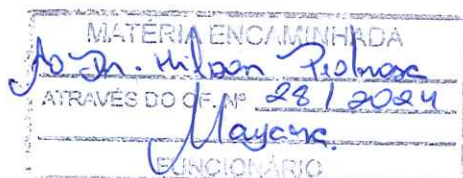 MATÉRIA ENCAMINHADA
Ao Dr. Hilson
ATRAVÉS DO OF. Nº 28 / 2024
Mayara.
FUNCIONÁRIO